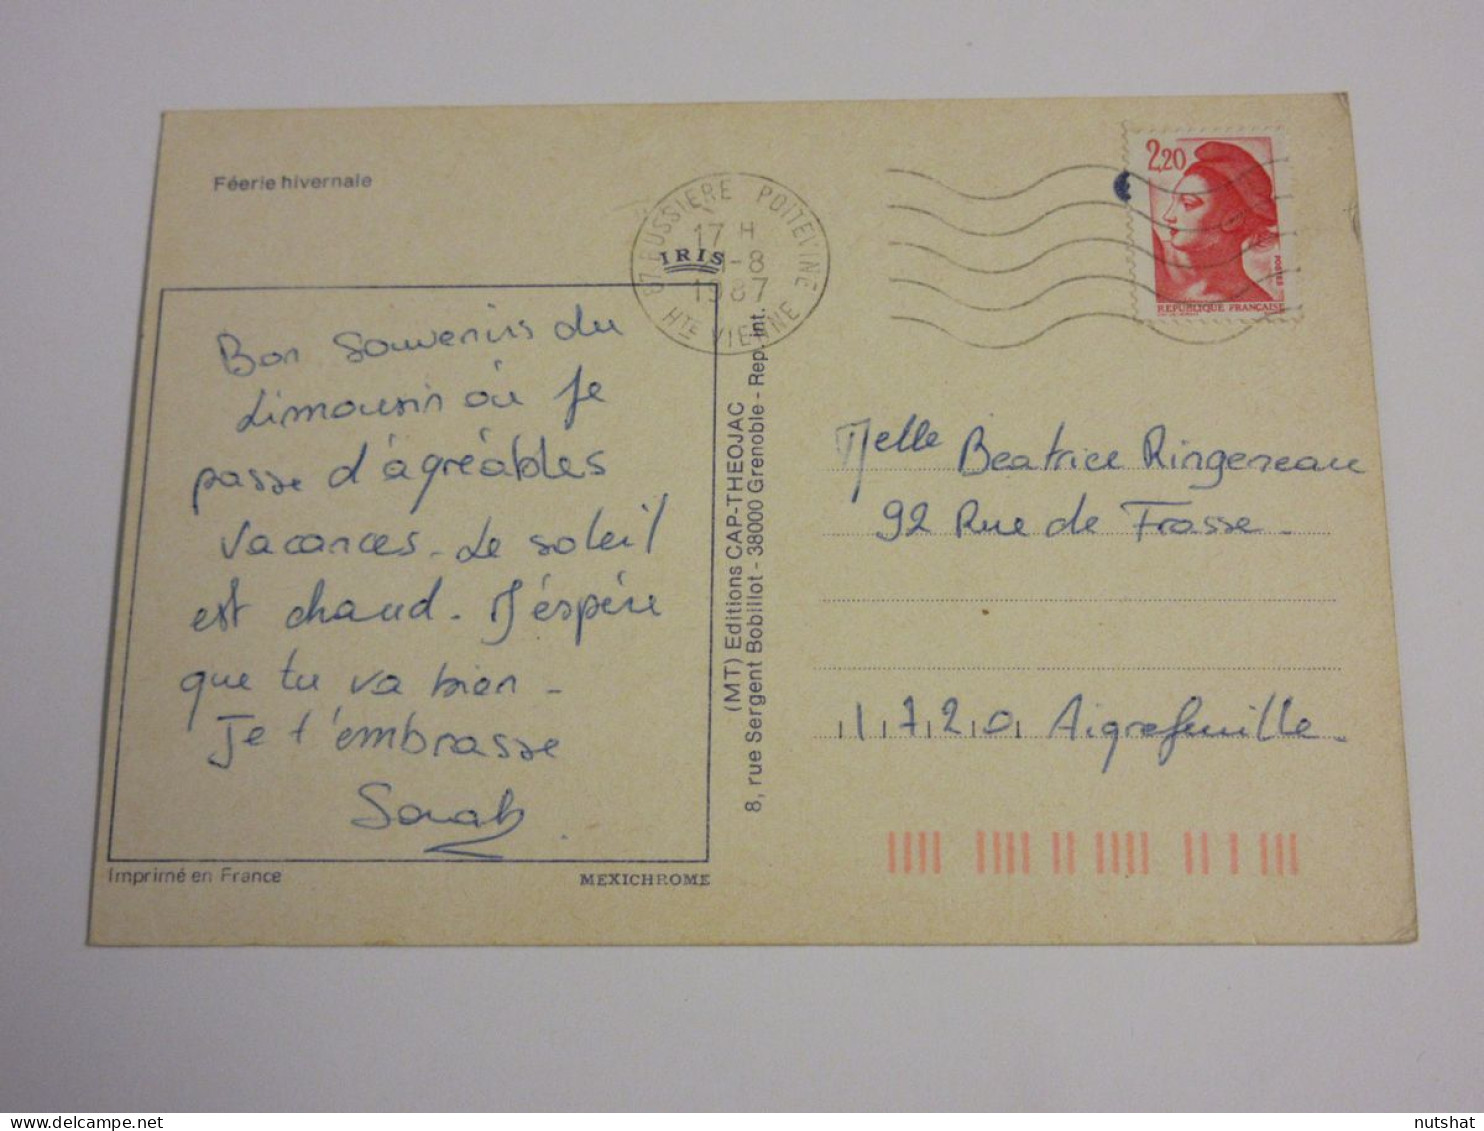 Féerie hivernale
87 BUSSIERE POITEVINE
17 H
-8
1987
HTE VIENNE
IRIS
2,20
POSTES
REPUBLIQUE FRANÇAISE
Bon souvenirs du
Limousin où je
passe d'agréables
vacances - Le soleil
est chaud. J'éspère
que tu va bien -
Je t'embrasse
Sarah
(MT) Editions CAP-THEOJAC
8, rue Sergent Bobillot - 38000 Grenoble - Rep. int.
Melle Beatrice Ringereau
92 Rue de Frasse -
1 7 2 0 Aigrefeuille -
Imprimé en France
MEXICHROME
nutshat